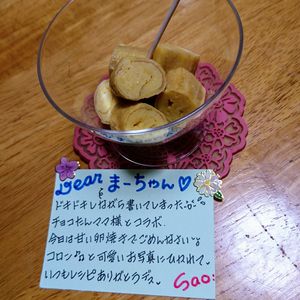 Dear まーちゃん♡
ドキドキしながら書いてしまった
チョコたんママ様とコラボ
今日は甘い卵焼きでごめんなさい
コロンﾞﾞと可愛いお写真にひねれて
いつもレシピありがとうデス♥
Sao: